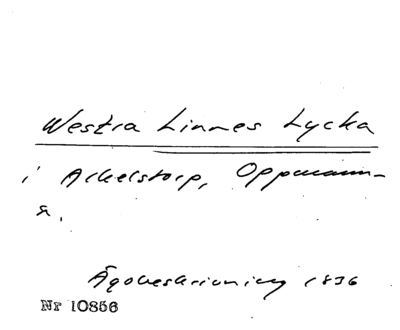 Westra Linnes Lycka
i Arkelstorp, Oppmann-
a.
Ägobeskrivning 1836
Nr 10856